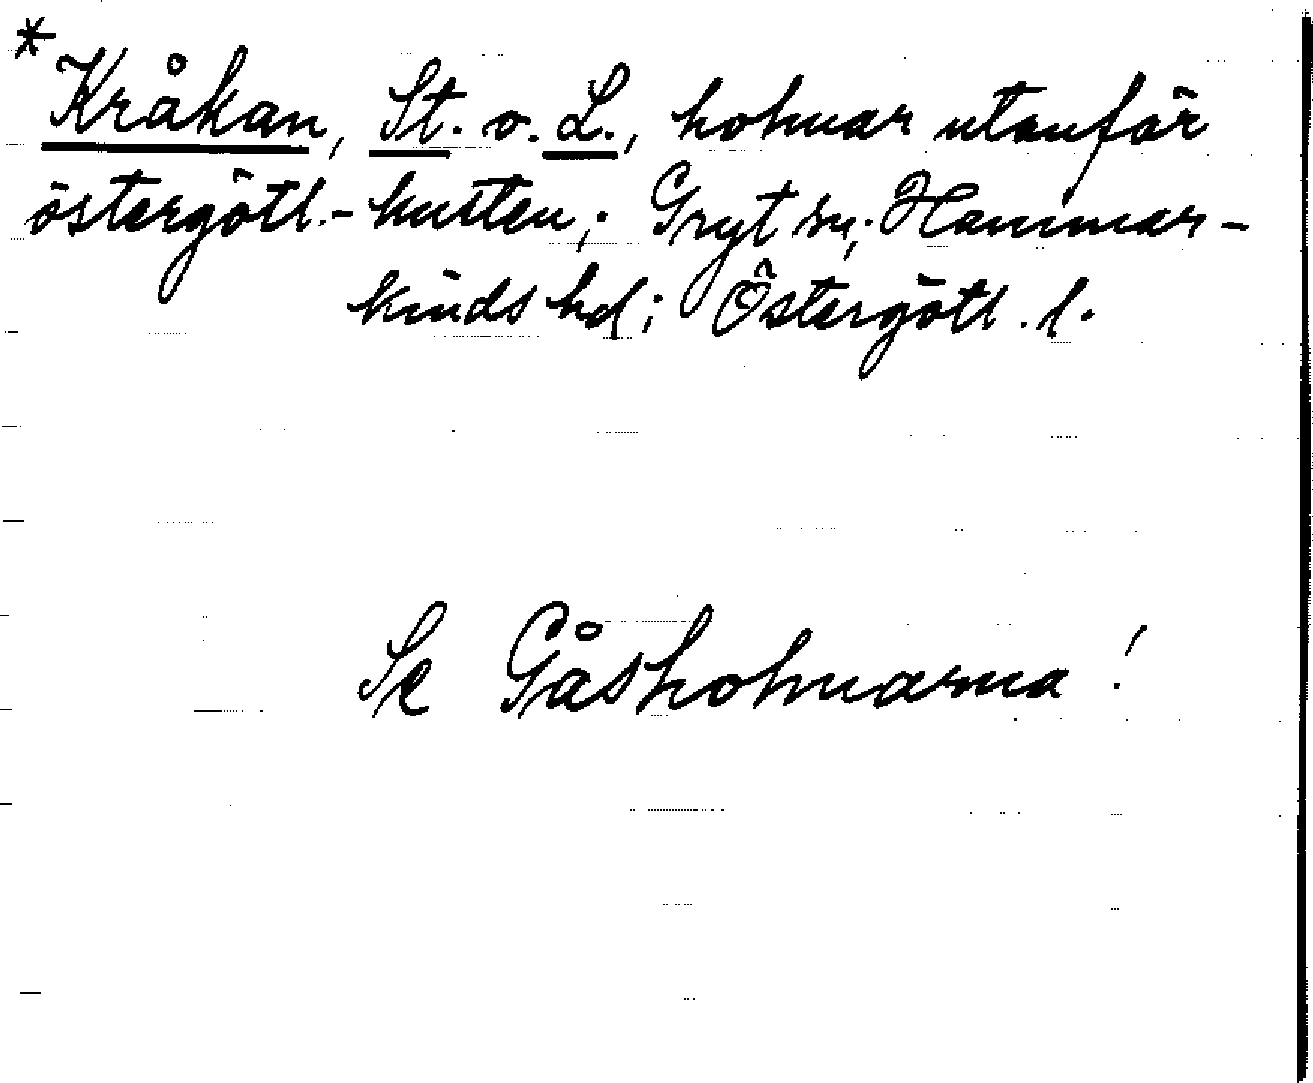 * Kråkan, St. o. L., holmar utanför
östergötl.-kusten; Gryt sn; Hammar-
kinds hd; Östergötl. l.
Se Gåsholmarna!